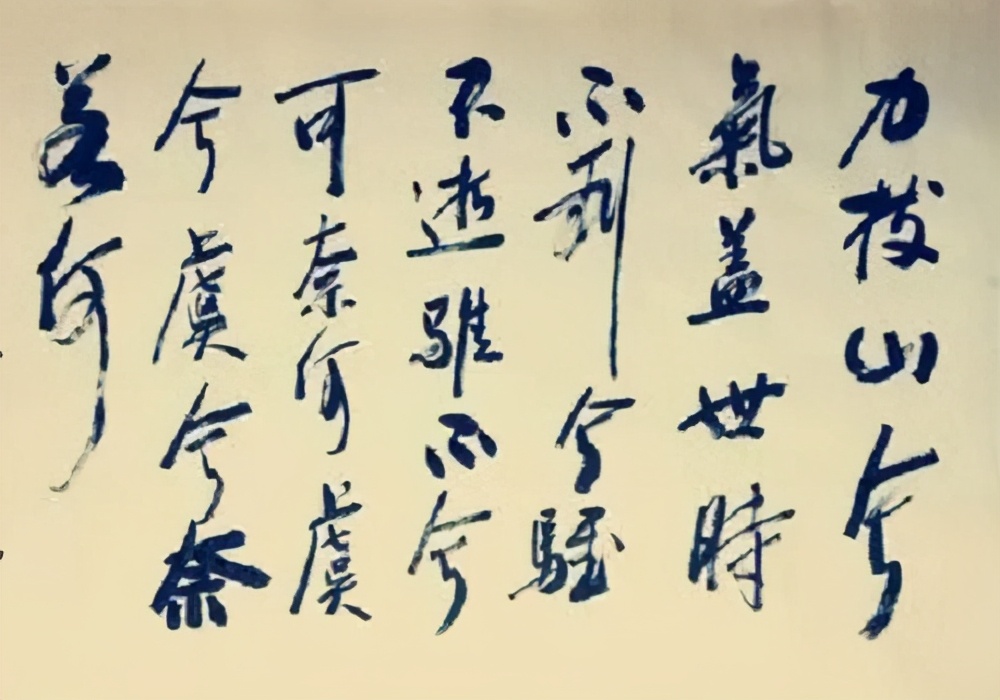 力拔山兮
氣盖世時
不利兮騅
不逝騅不兮
可奈何虞
兮虞兮奈
若何